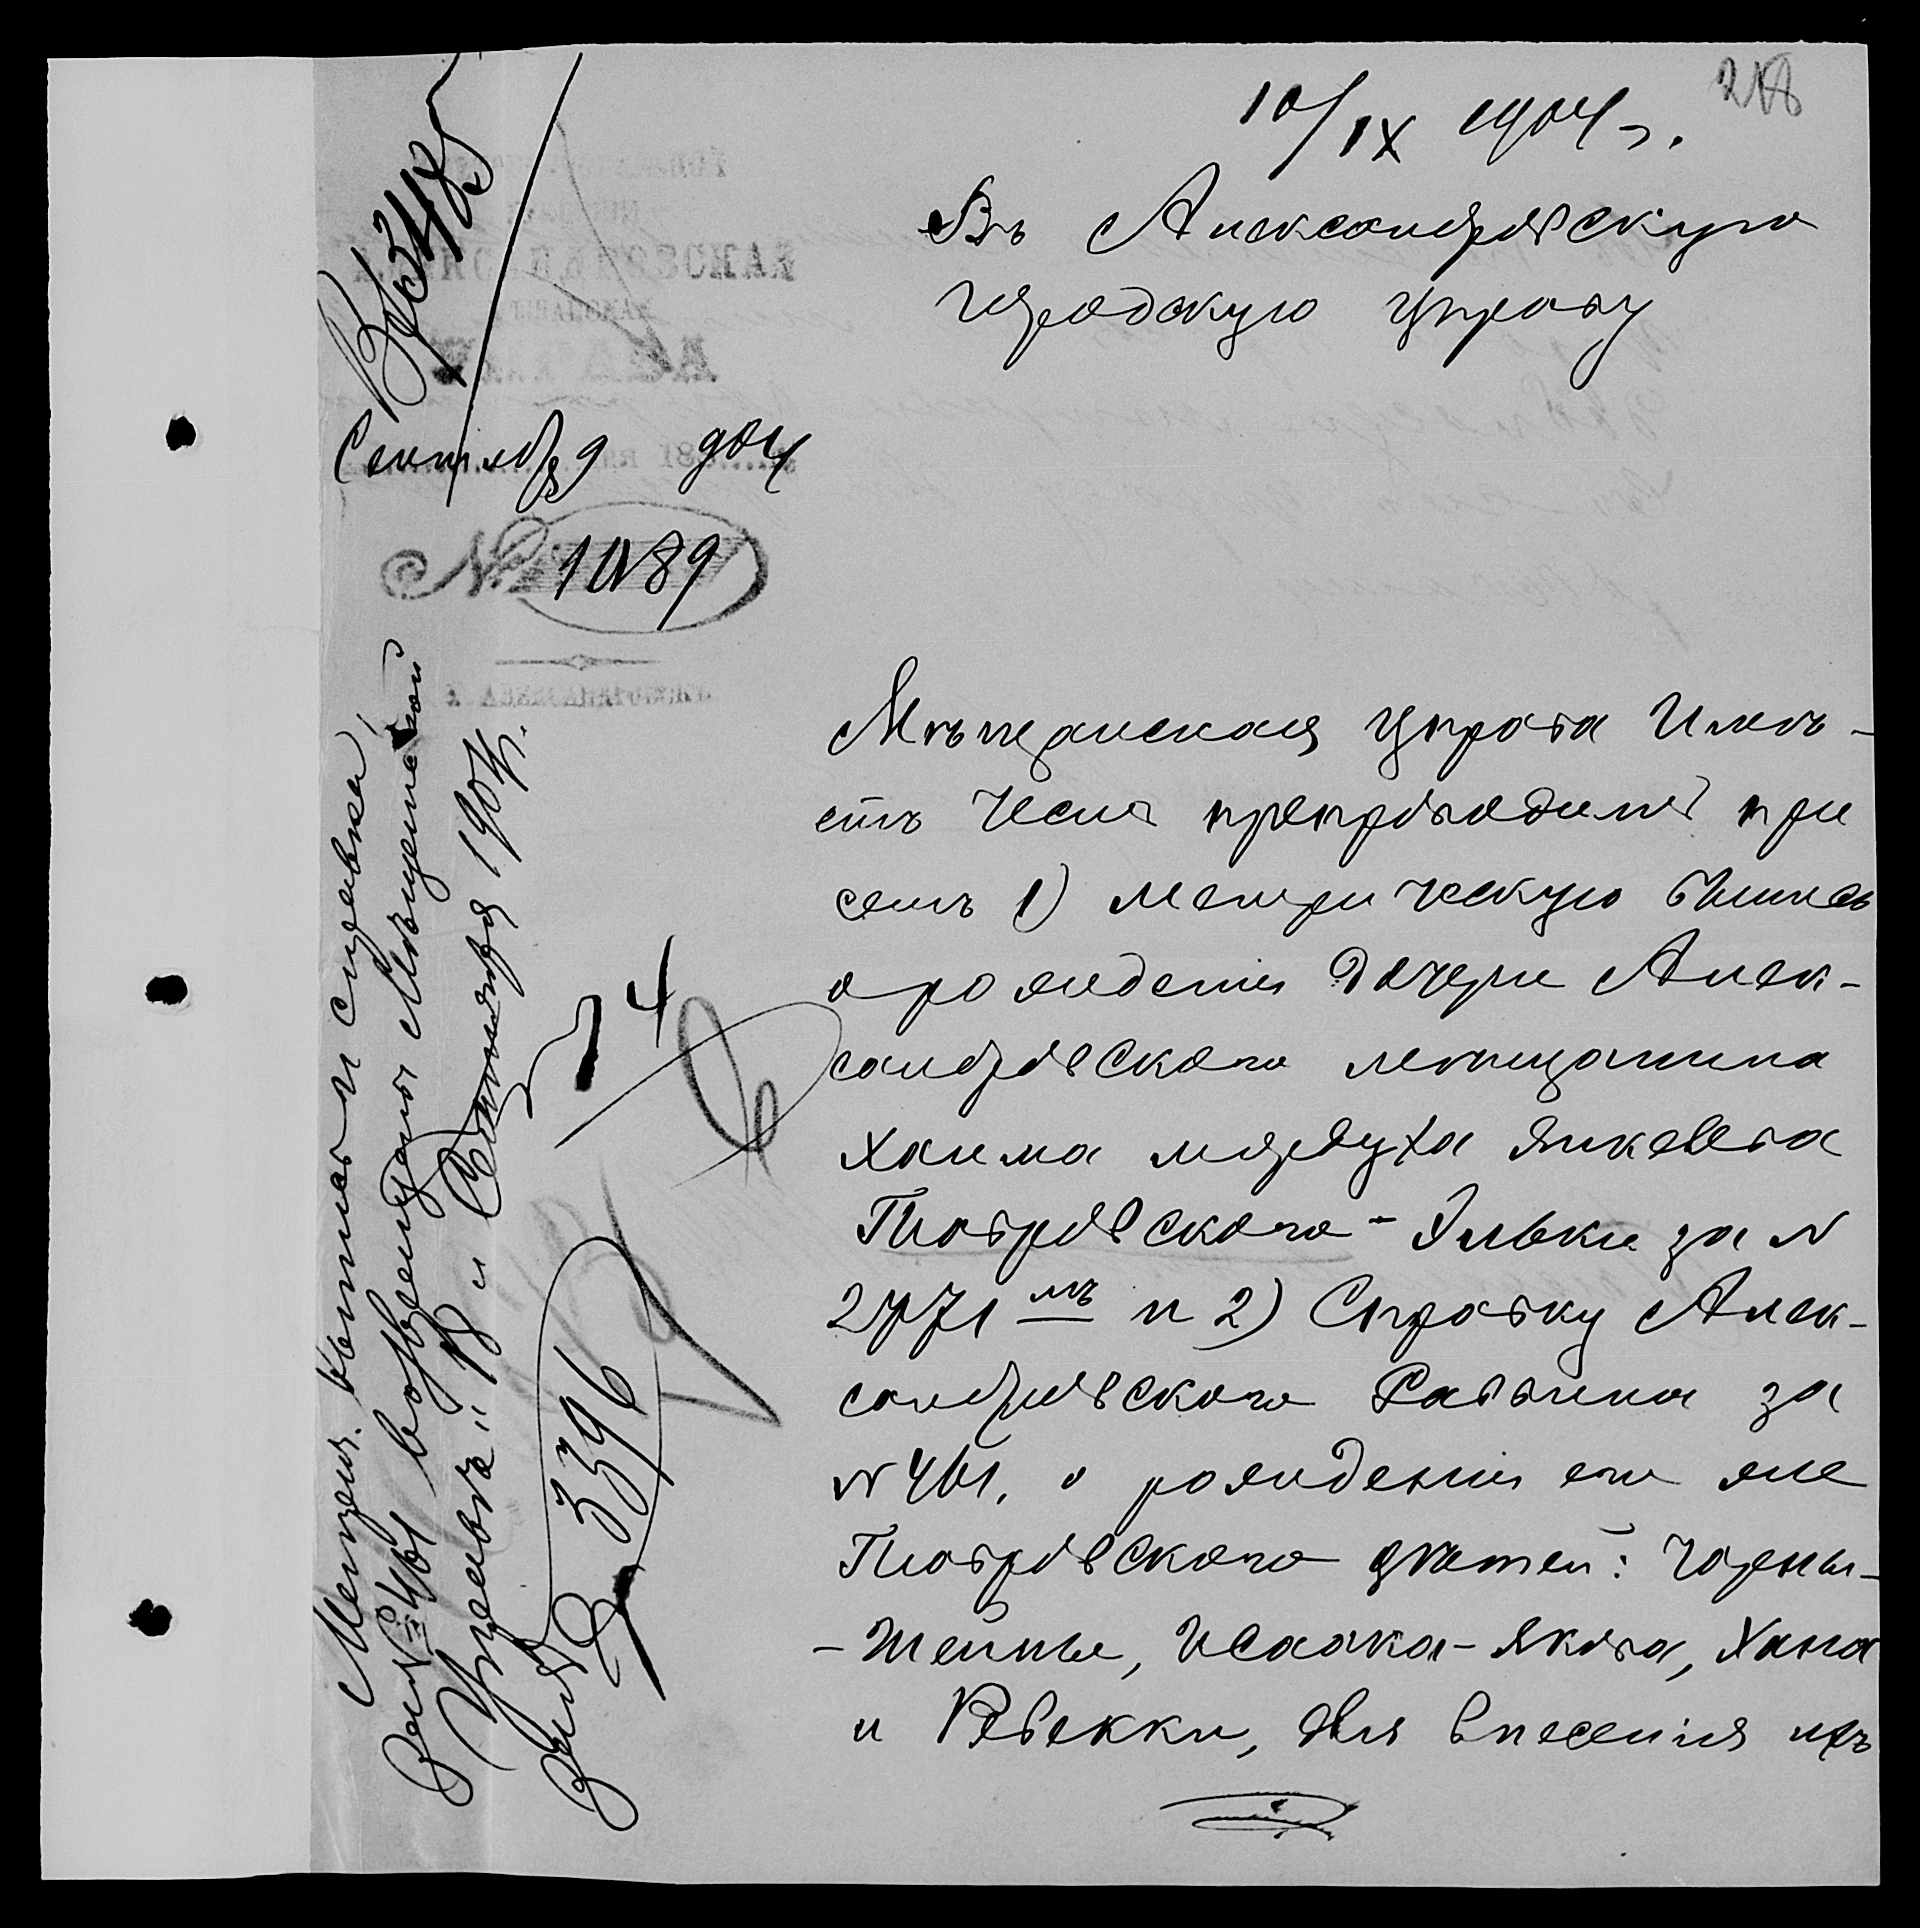 10/IX 1904 г.
Въ Александровскую
городскую управу
Сентября 9 904
№ 1089
Г. АЛЕКСАНДРОВСКЪ
Мѣщанская управа имѣ-
етъ честь препроводить при
семъ 1) метрическую выпись
о рожденіи дочери Алек-
сандровскаго мѣщанина
Хаима Мордуха Янкелева
Піотровскаго - Эльки за №
2771 мъ и 2) Справку Алек-
сандровскаго Раввина за
№ 461, о рожденіи его же
Піотровскаго дѣтей: Чарны-
-Шейны, Исаака-Якова, Хана
и Ревекки, для внесенія ихъ
Метрич. выпись и справка
за № 461 возвращены Мѣщанской
Управѣ "18" Сентября 1904 г.
за № 3396